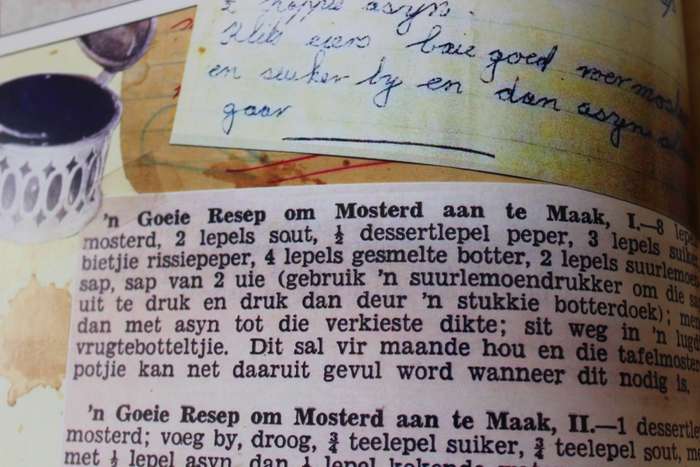 koppie asyn.
Klits eiers baie goed. roer mosterd
en suiker by en dan asyn
gaar
'n Goeie Resep om Mosterd aan te Maak, I.—8
mosterd, 2 lepels sout, ½ dessertlepel peper, 3 lepels
bietjie rissiepeper, 4 lepels gesmelte botter, 2 lepels suurlemoen
sap, sap van 2 uie (gebruik 'n suurlemoendrukker om die
uit te druk en druk dan deur 'n stukkie botterdoek);
dan met asyn tot die verkieste dikte; sit weg in 'n
vrugtebotteltjie. Dit sal vir maande hou en die
potjie kan net daaruit gevul word wanneer dit nodig is,
'n Goeie Resep om Mosterd aan te Maak, II.—1
mosterd; voeg by, droog, ¾ teelepel suiker, ¾ teelepel sout,
met ½ lepel asyn, dan lepel